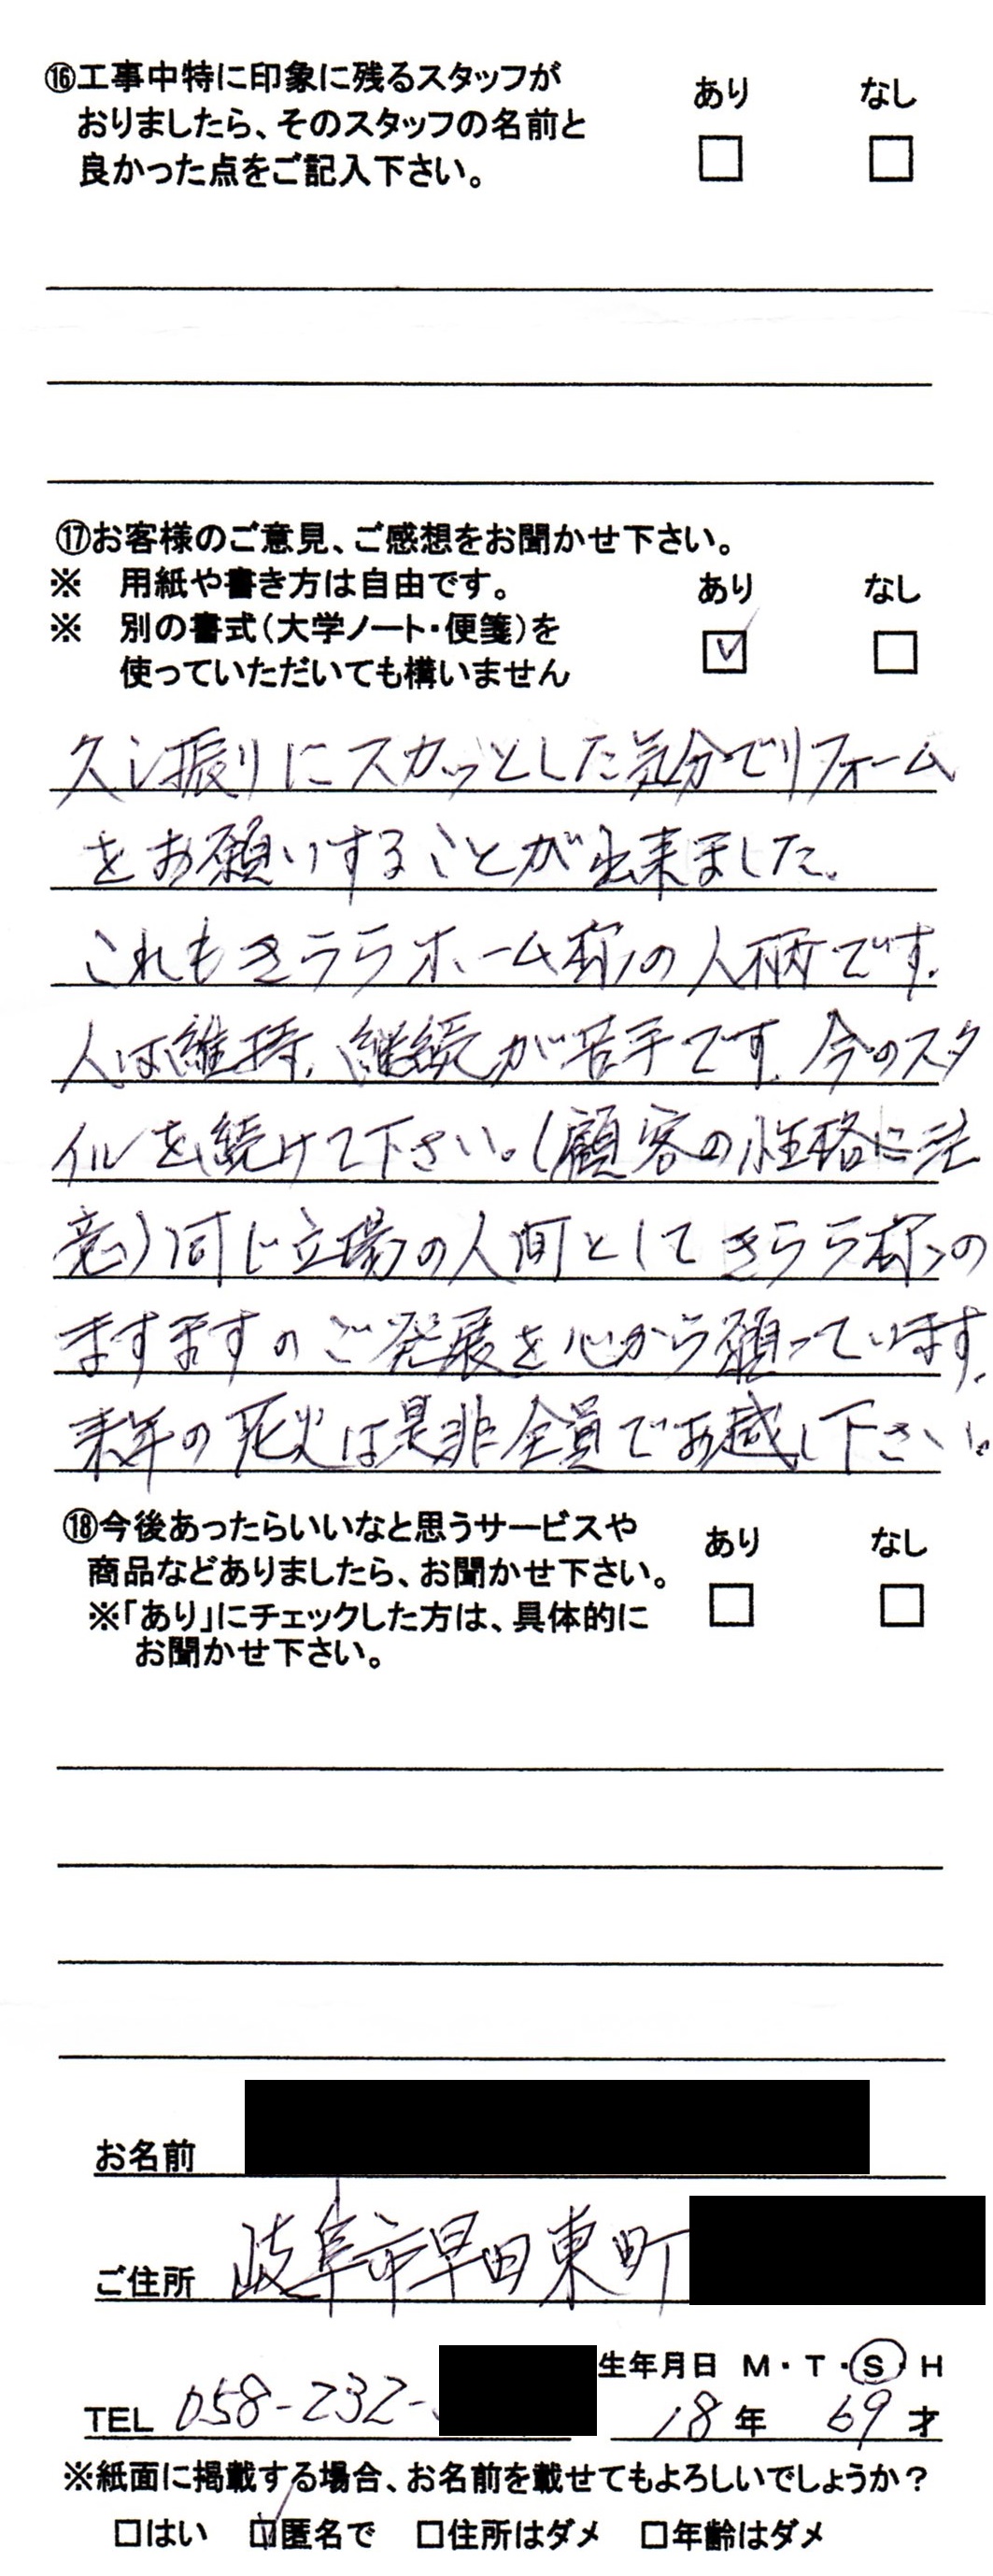 ⑯工事中特に印象に残るスタッフが
おりましたら、そのスタッフの名前と
良かった点をご記入下さい。
あり なし
□ □
⑰お客様のご意見、ご感想をお聞かせ下さい。
※ 用紙や書き方は自由です。
※ 別の書式(大学ノート・便箋)を
使っていただいても構いません
あり なし
☑ □
久し振りにスカッとした気分でリフォーム
をお願いすることが出来ました。
これもきららホーム様の人柄です。
人は維持、継続が苦手です。今のスタ
イルを続けて下さい。(顧客の性格に注
意)同じ立場の人間としてきらら様の
ますますのご発展を心から願っています。
来年の花火は是非全員でお越し下さい。
⑱今後あったらいいなと思うサービスや
商品などありましたら、お聞かせ下さい。
※「あり」にチェックした方は、具体的に
お聞かせ下さい。
あり なし
□ □
お名前
ご住所 岐阜市早田東町
生年月日 M・T・Ⓢ・H
TEL 058-232- 18年 69才
※紙面に掲載する場合、お名前を載せてもよろしいでしょうか?
□はい ☑匿名で □住所はダメ □年齢はダメ